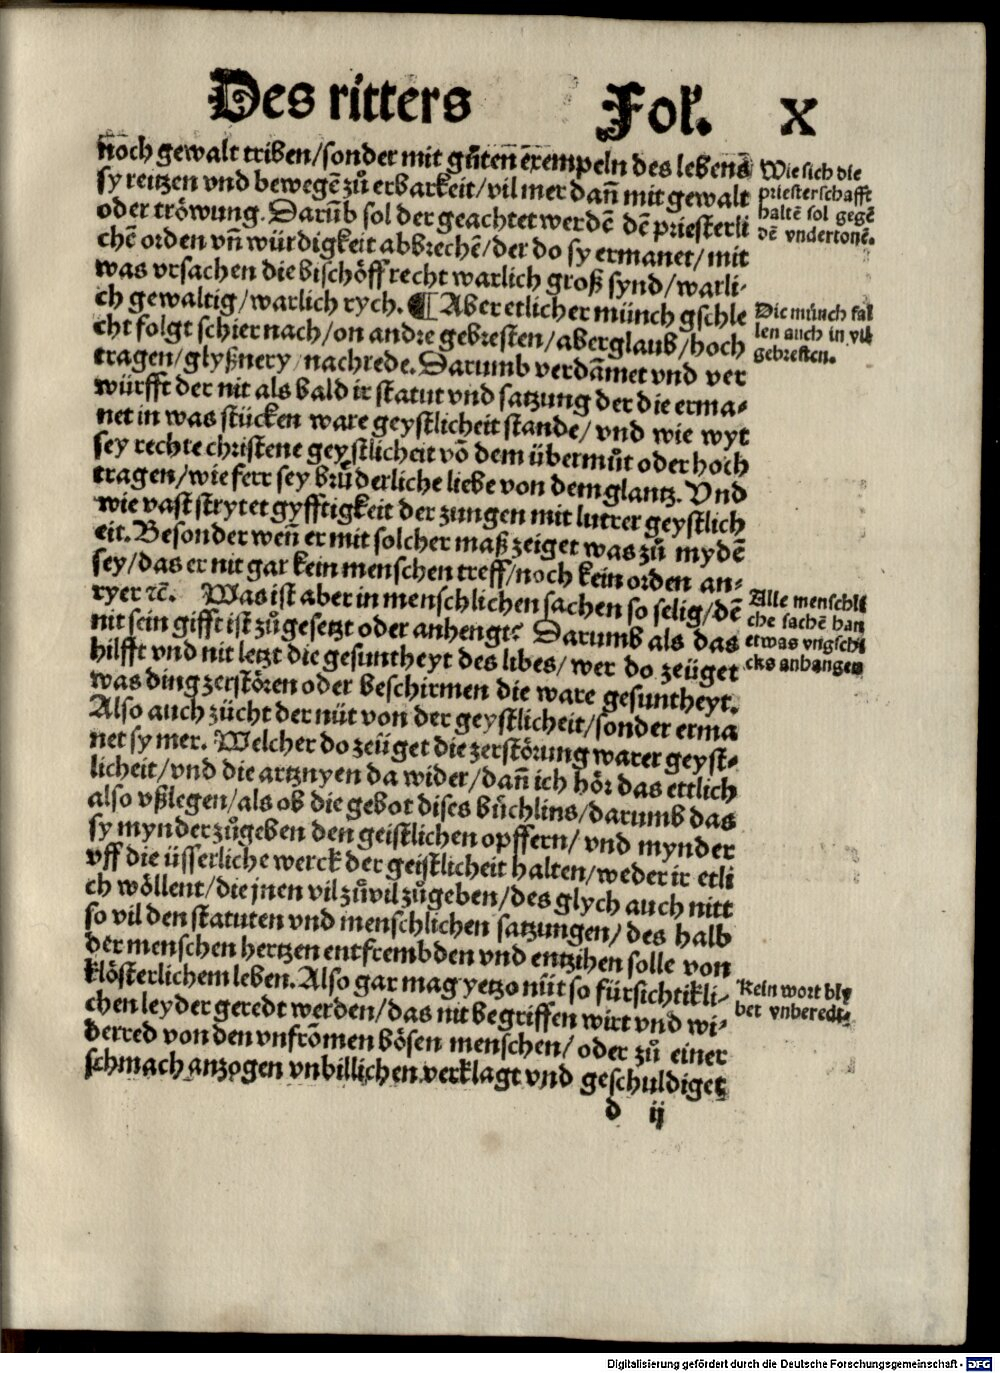 Des ritters Fol. X
noch gewalt triben/sonder mit gůten exempeln des lebens
sy reitzen vnd bewegē zů erbarkeit/vil mer dañ mit gewalt
oder tröwung. Darūb sol der geachtet werdē dē priesterli
chē orden vñ würdigkeit abbrechē/der do sy ermanet/mit
was vrsachen die bischöff recht warlich groß synd/warli-
ch gewaltig/warlich rych. ¶ Aber etlicher münch gschle
cht folgt schier nach/on andre gebresten/aberglaub/hoch
tragen/glyßnery/nachrede. Darumb verdāmet vnd ver
würfft der nit als bald ir statut vnd satzung der die erma-
net in was stücken ware geystlicheit stande/vnd wie wyt
sey rechte christene geystlicheit vō dem übermůt oder hoch
tragen/wie ferr sey brůderliche liebe von dem glantz. Vnd
wie vast strytet gyfftigkeit der zungen mit lutrer geystlich
eit. Besonder weñ er mit solcher maß zeiget was zů mydē
sey/das er nit gar kein menschen treff/noch kein orden an-
ryer ꝛc̄. Was ist aber in menschlichen sachen so selig/dē
nit sein gifft ist zůgesetzt oder anhengt? Darumb als das
hilfft vnd nit letzt die gesuntheyt des libes/wer do zeüget
was ding zerstören oder beschirmen die ware gesuntheyt.
Also auch zücht der nüt von der geystlicheit/sonder erma
net sy mer. Welcher do zeüget die zerstörung warer geyst-
licheit/vnd die artznyen da wider/dañ ich hör das ettlich
also vßlegen/als ob die gebot dises bůchlins/darumb das
sy mynder zůgeben den geistlichen opffern/vnd mynder
vff die üsserliche werck der geistlicheit halten/weder ir etli
ch wöllent/die jnen vil zůvil zůgeben/des glych auch nitt
so vil den statuten vnd menschlichen satzungen/des halb
der menschen hertzen entfrembden vnd entzihen solle von
klösterlichem leben. Also gar mag yetzo nüt so fürsichtikli-
chen leyder geredt werden/das nit begriffen wirt vnd wi-
derred von den vnfrōmen bösen menschen/oder zů einer
schmach anzogen vnbillichen verklagt vnd geschuldiget
d ij
Wie sich die
priesterschafft
haltē sol gegē
dē vndertonē.
Die münch fal
len auch in vil
gebresten.
Alle menschli
che sachē han
etwas vngschi
cks anhangen
Kein wort bly
bet vnberedt.
Digitalisierung gefördert durch die Deutsche Forschungsgemeinschaft - DFG